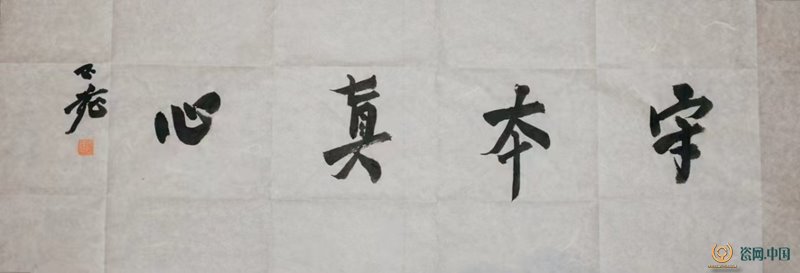 守本真心
瓷网.中国